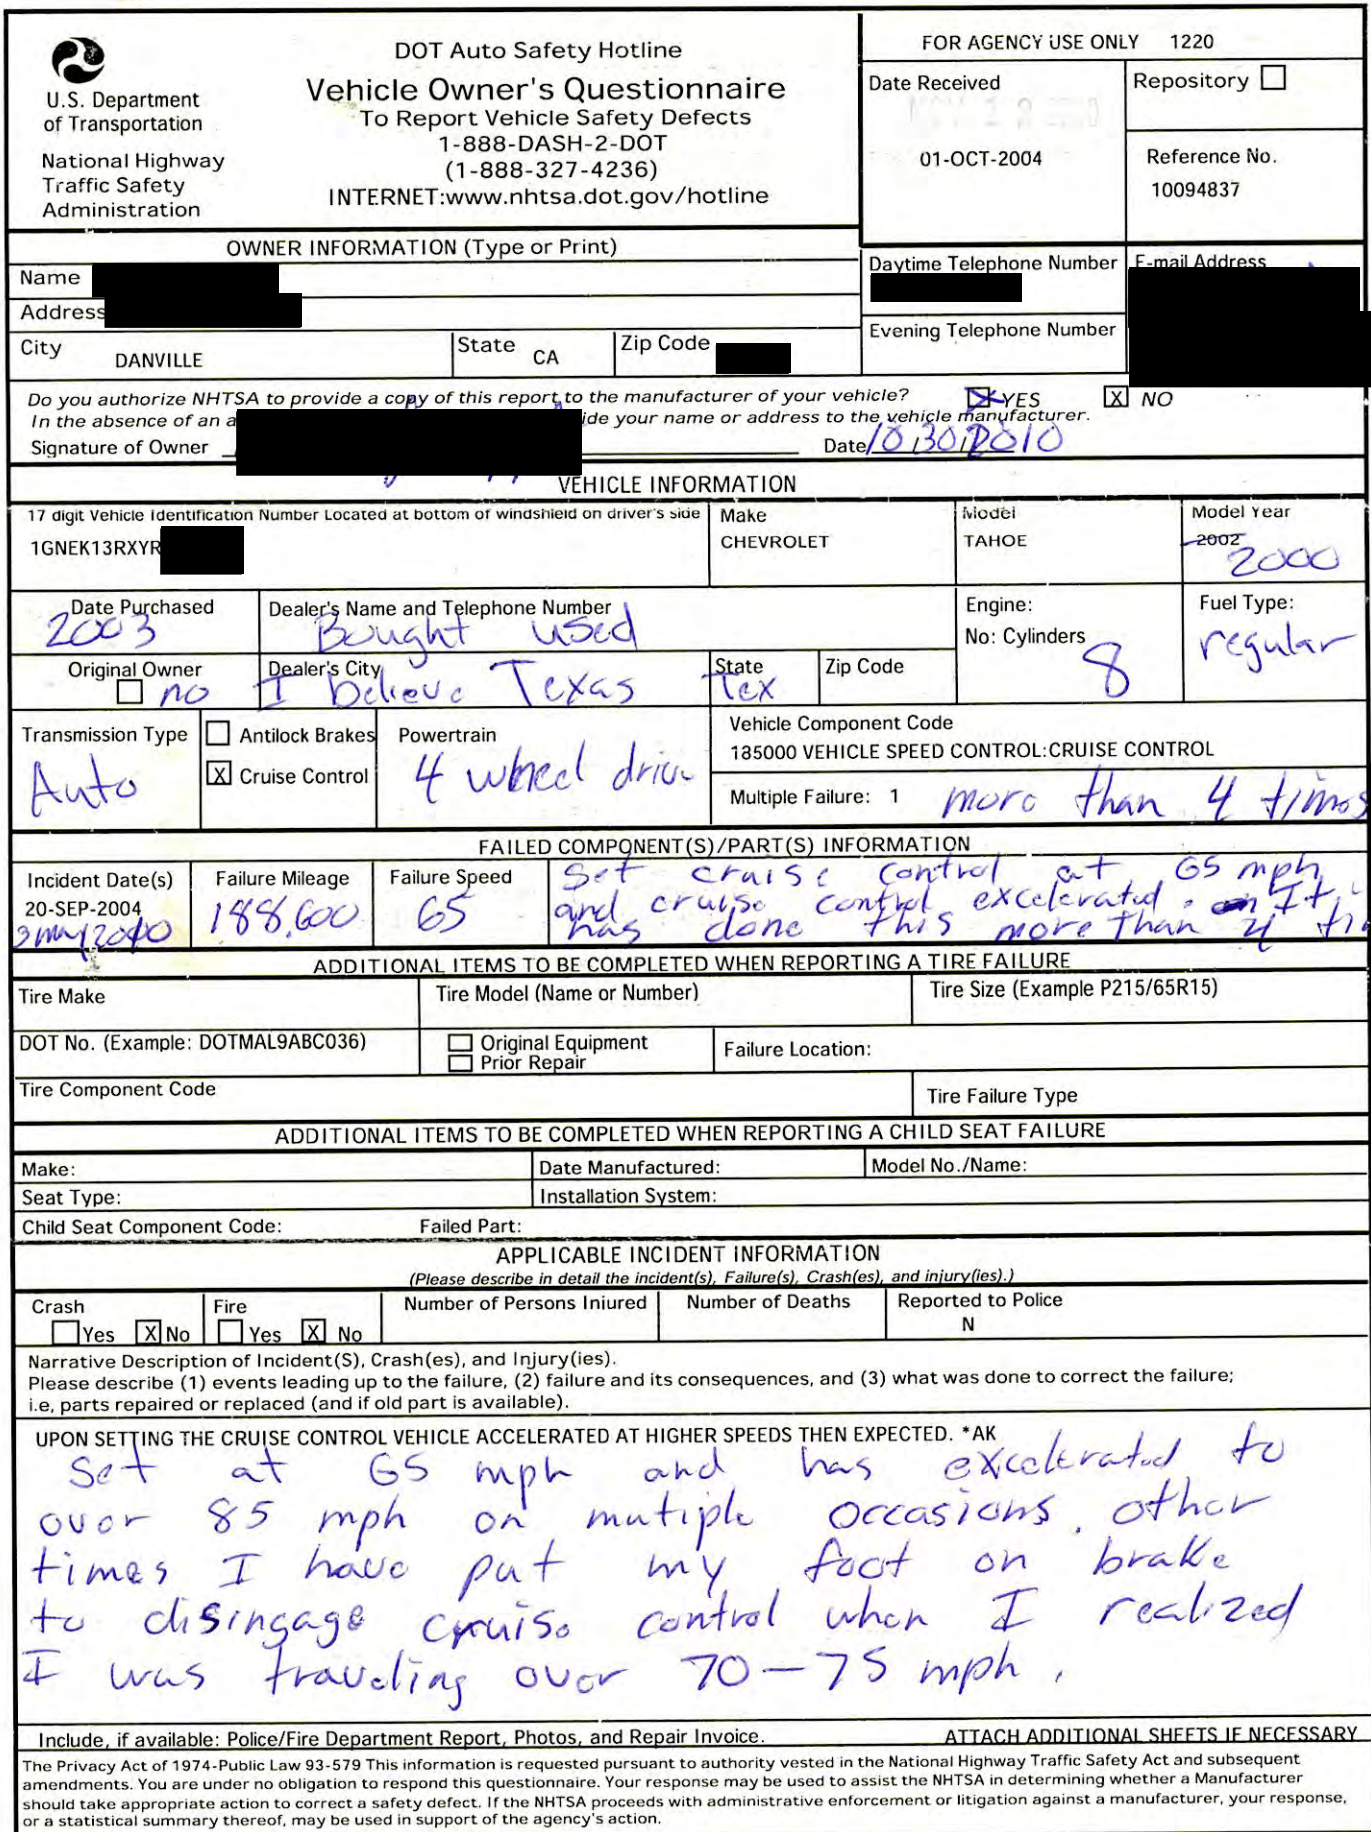 U.S. Department
of Transportation
National Highway
Traffic Safety
Administration
DOT Auto Safety Hotline
Vehicle Owner's Questionnaire
To Report Vehicle Safety Defects
1-888-DASH-2-DOT
(1-888-327-4236)
INTERNET:www.nhtsa.dot.gov/hotline
FOR AGENCY USE ONLY 1220
Date Received
01-OCT-2004
Repository
Reference No.
10094837
OWNER INFORMATION (Type or Print)
Name
Address
City DANVILLE State CA Zip Code
Daytime Telephone Number
E-mail Address
Evening Telephone Number
Do you authorize NHTSA to provide a copy of this report to the manufacturer of your vehicle? YES X NO
In the absence of an a ide your name or address to the vehicle manufacturer.
Signature of Owner Date 10 30 2010
VEHICLE INFORMATION
17 digit Vehicle Identification Number Located at bottom of windshield on driver's side
1GNEK13RXYR
Make
CHEVROLET
Model
TAHOE
Model Year
2002
2000
Date Purchased
2003
Dealer's Name and Telephone Number
Bought used
Engine:
No: Cylinders
8
Fuel Type:
regular
Original Owner
no
Dealer's City
I believe Texas
State
Tex
Zip Code
Transmission Type
Auto
Antilock Brakes
X Cruise Control
Powertrain
4 wheel drive
Vehicle Component Code
185000 VEHICLE SPEED CONTROL:CRUISE CONTROL
Multiple Failure: 1 more than 4 times
FAILED COMPONENT(S)/PART(S) INFORMATION
Incident Date(s)
20-SEP-2004
3 may 2010
Failure Mileage
188,600
Failure Speed
65
Set cruise control at 65 mph
and cruise control excelerated. It
has done this more than 4 ti
ADDITIONAL ITEMS TO BE COMPLETED WHEN REPORTING A TIRE FAILURE
Tire Make
Tire Model (Name or Number)
Tire Size (Example P215/65R15)
DOT No. (Example: DOTMAL9ABC036)
Original Equipment
Prior Repair
Failure Location:
Tire Component Code
Tire Failure Type
ADDITIONAL ITEMS TO BE COMPLETED WHEN REPORTING A CHILD SEAT FAILURE
Make:
Date Manufactured:
Model No./Name:
Seat Type:
Installation System:
Child Seat Component Code:
Failed Part:
APPLICABLE INCIDENT INFORMATION
(Please describe in detail the incident(s), Failure(s), Crash(es), and injury(ies).)
Crash
Yes X No
Fire
Yes X No
Number of Persons Injured
Number of Deaths
Reported to Police
N
Narrative Description of Incident(S), Crash(es), and Injury(ies).
Please describe (1) events leading up to the failure, (2) failure and its consequences, and (3) what was done to correct the failure;
i.e, parts repaired or replaced (and if old part is available).
UPON SETTING THE CRUISE CONTROL VEHICLE ACCELERATED AT HIGHER SPEEDS THEN EXPECTED. *AK
Set at 65 mph and has excelerated to
over 85 mph on mutiple occasions, other
times I have put my foot on brake
to disingage cruise control when I realized
I was traveling over 70-75 mph.
Include, if available: Police/Fire Department Report, Photos, and Repair Invoice. ATTACH ADDITIONAL SHEETS IF NECESSARY
The Privacy Act of 1974-Public Law 93-579 This information is requested pursuant to authority vested in the National Highway Traffic Safety Act and subsequent
amendments. You are under no obligation to respond this questionnaire. Your response may be used to assist the NHTSA in determining whether a Manufacturer
should take appropriate action to correct a safety defect. If the NHTSA proceeds with administrative enforcement or litigation against a manufacturer, your response,
or a statistical summary thereof, may be used in support of the agency's action.